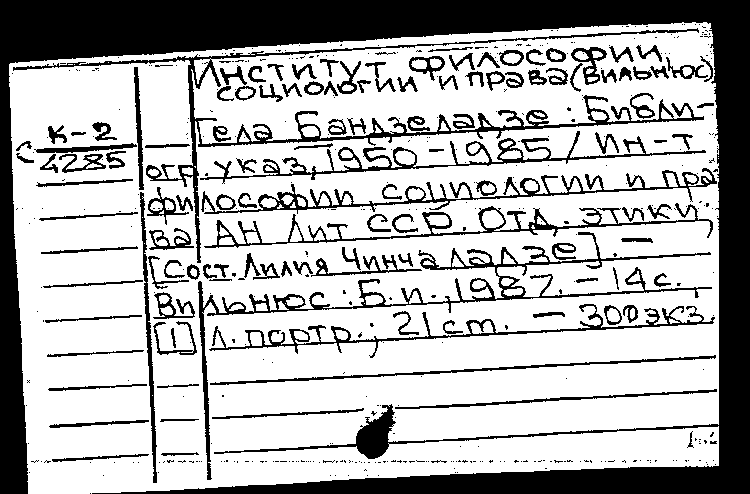 Институт философии,
социологии и права (Вильнюс)
К-2
С 4285
Гела Бандзеладзе : Библи-
огр. указ, 1950-1985 / Ин-т
философии, социологии и пра
ва АН Лит ССР. Отд. этики;
[Сост. Лилия Чинчаладзе]. —
Вильнюс : Б. и., 1987. - 14 с.,
[1] л. портр.; 21 см. — 300 экз.